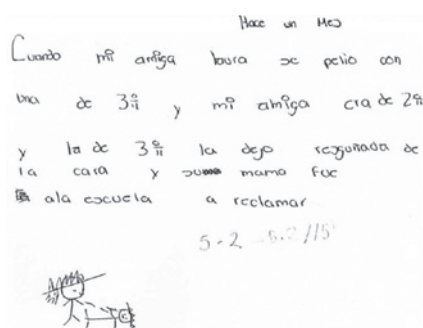 Hace un Mes
Cuando mi amiga laura se pelio con
una de 3º y mi amiga era de 2º
y la de 3º la dejo resguñada de
la cara y su mama fue
ala escuela a reclamar